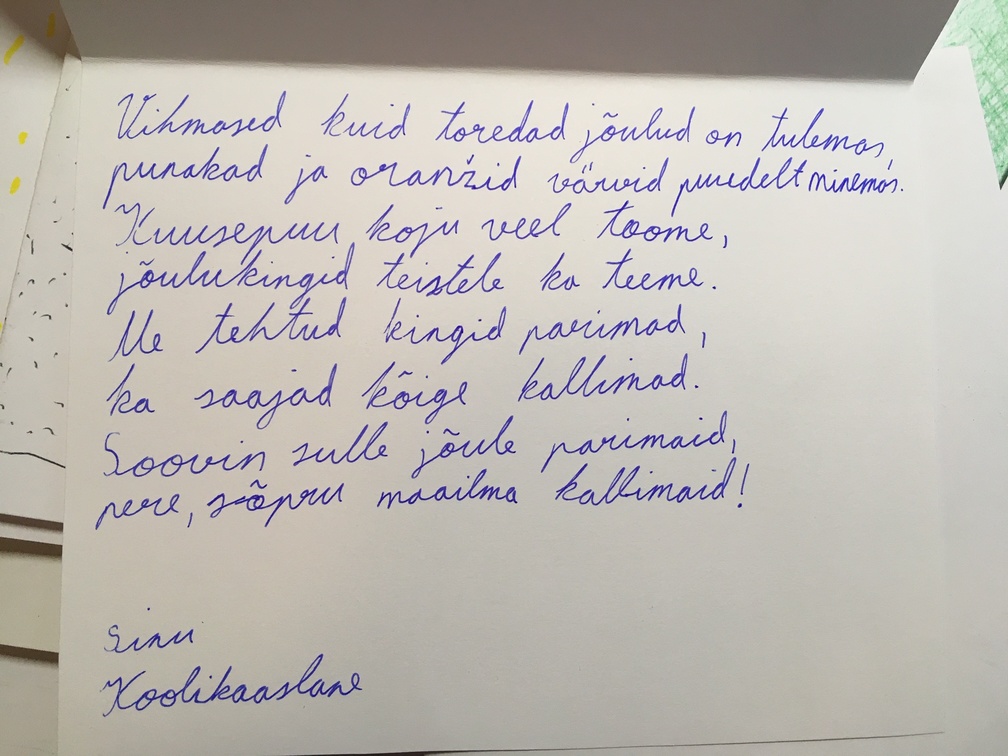 Vihmased kuid toredad jõulud on tulemas,
punakad ja oranžid värvid puudelt minemas.
Kuusepuu koju veel toome,
jõulukingid teistele ka teeme.
Me tehtud kingid parimad,
ka saajad kõige kallimad.
Soovin sulle jõule parimaid,
pere, sõpru maailma kallimaid!
Sinu
Koolikaaslane